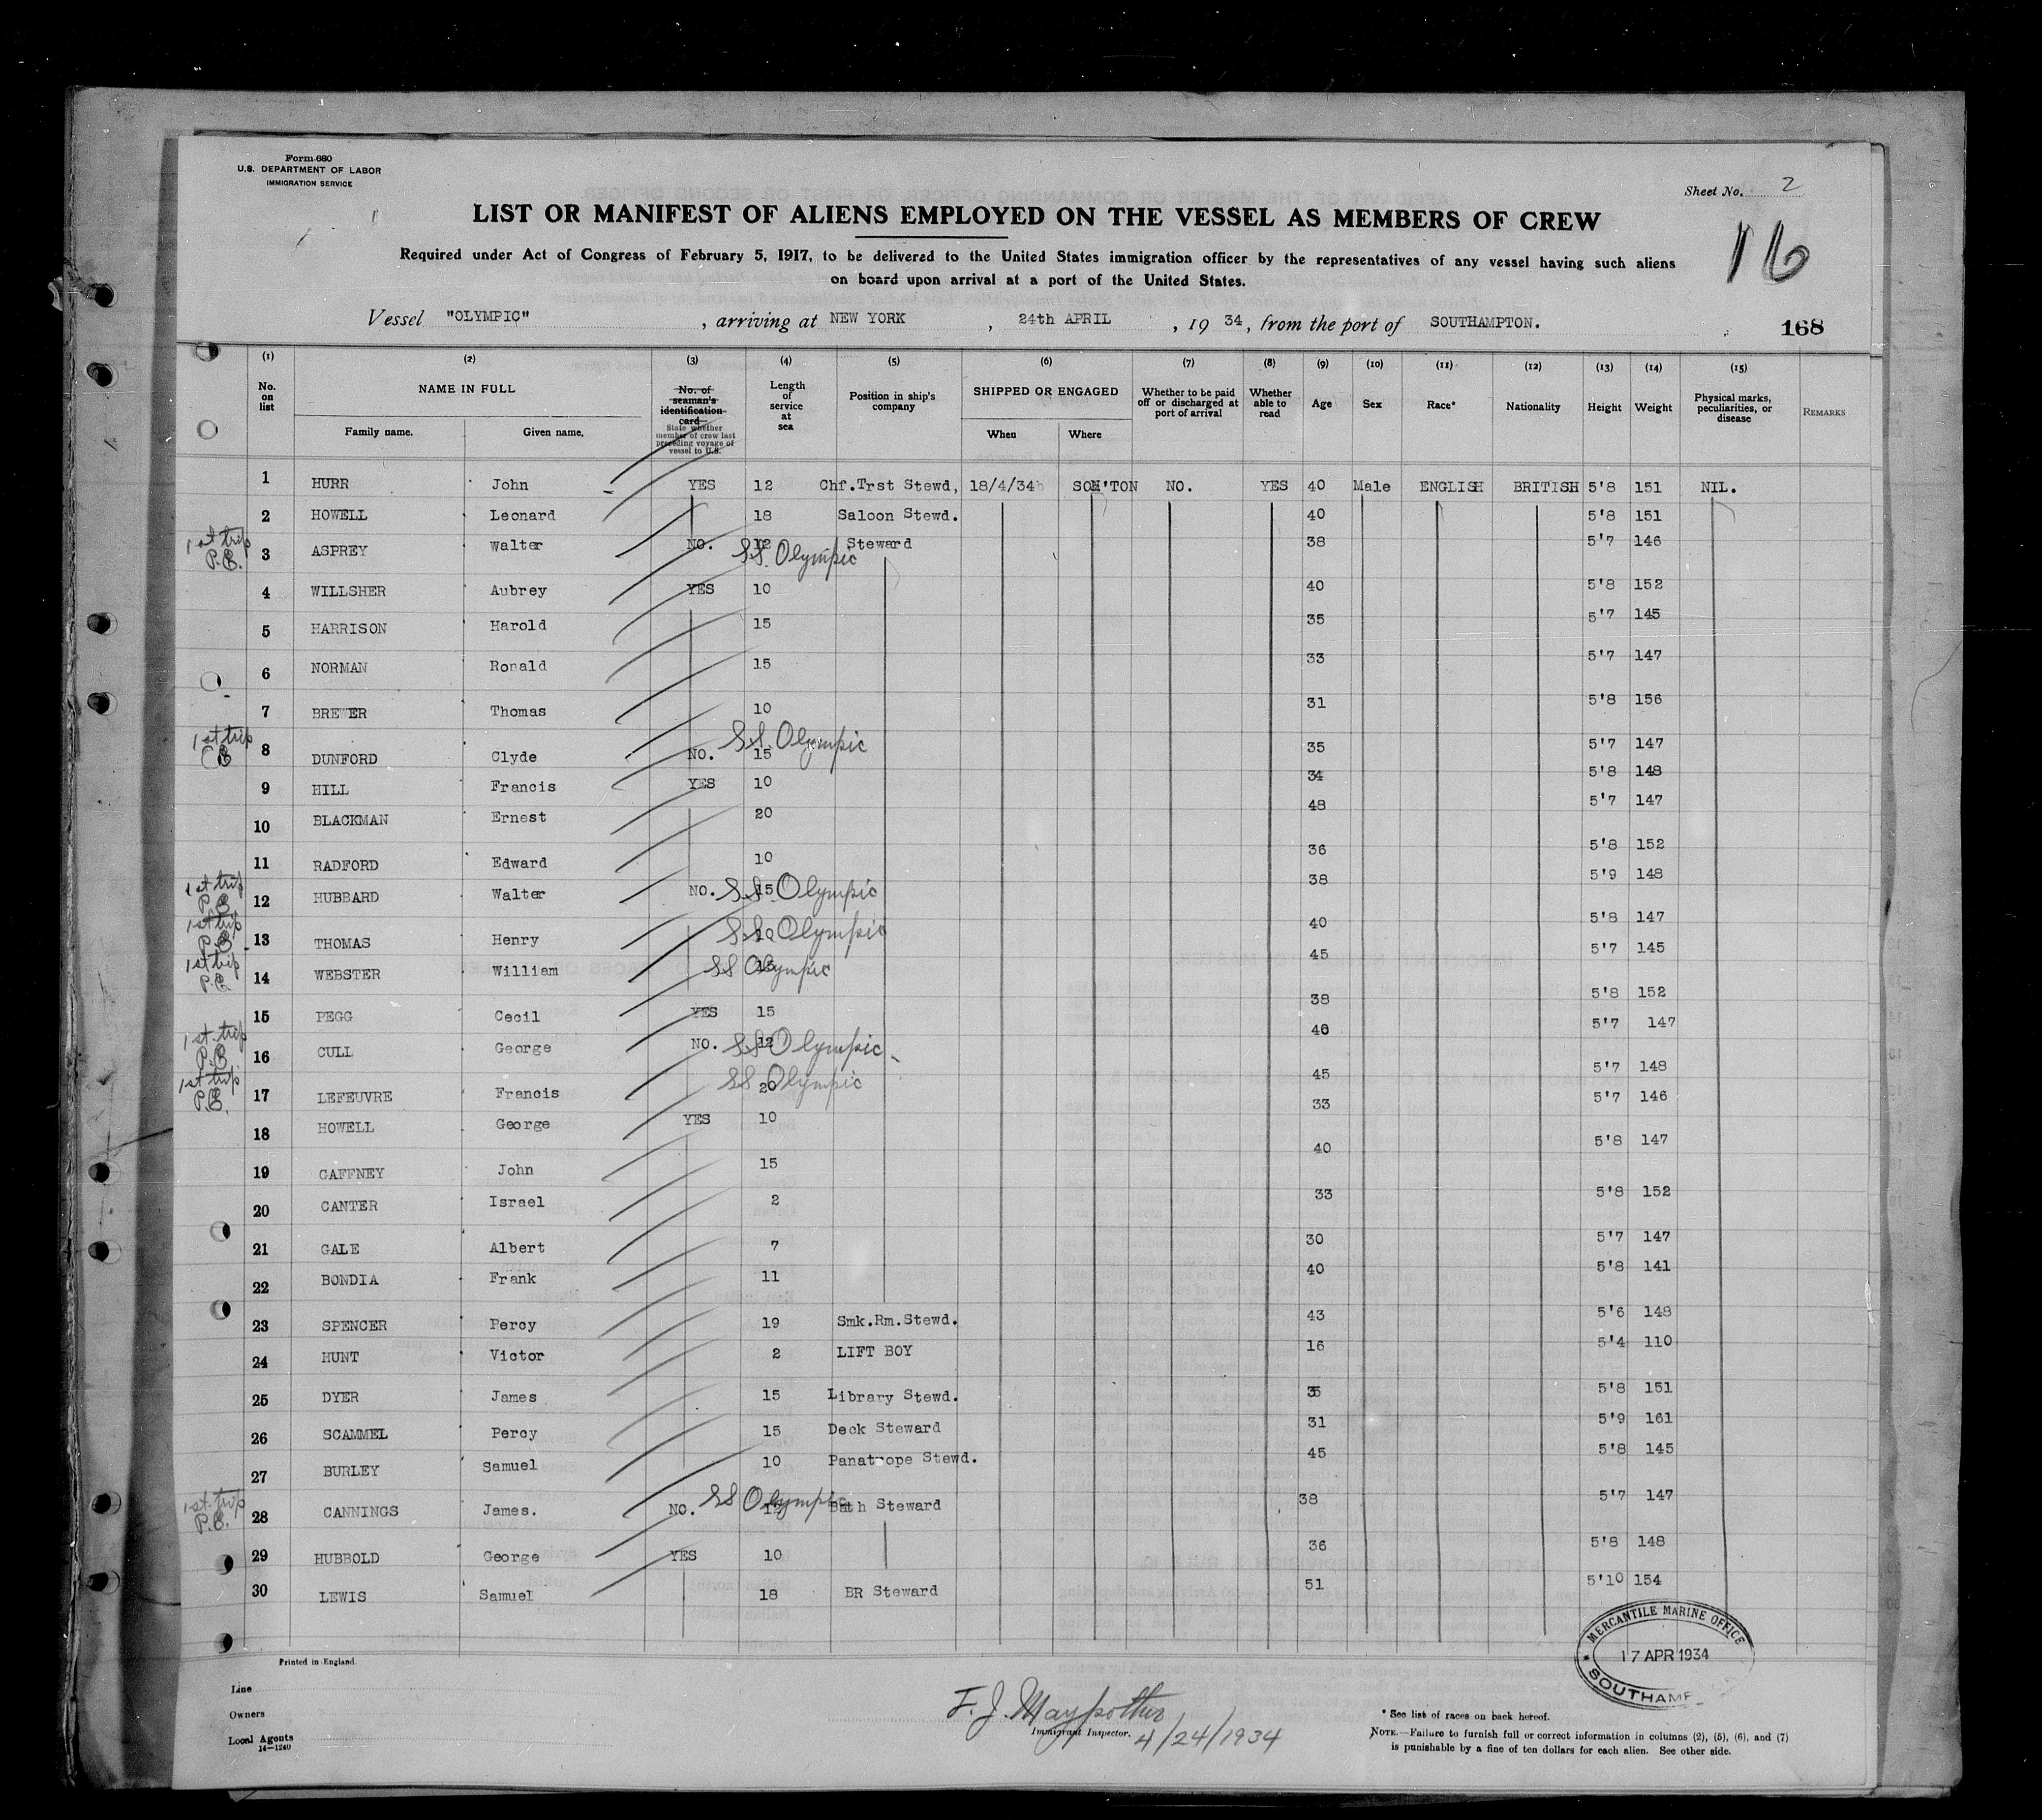 Form 680
U.S. DEPARTMENT OF LABOR
IMMIGRATION SERVICE
Sheet No. 2
LIST OR MANIFEST OF ALIENS EMPLOYED ON THE VESSEL AS MEMBERS OF CREW
16
Required under Act of Congress of February 5, 1917, to be delivered to the United States immigration officer by the representatives of any vessel having such aliens
on board upon arrival at a port of the United States.
Vessel "OLYMPIC", arriving at NEW YORK, 24th APRIL, 1934, from the port of SOUTHAMPTON. 168
(1) (2) (3) (4) (5) (6) (7) (8) (9) (10) (11) (12) (13) (14) (15)
No. on list NAME IN FULL Family name. Given name. No. of seaman's identification card State whether member of crew last preceding voyage of vessel to U.S. Length of service at sea Position in ship's company SHIPPED OR ENGAGED When Where Whether to be paid off or discharged at port of arrival Whether able to read Age Sex Race* Nationality Height Weight Physical marks, peculiarities, or disease REMARKS
1 HURR John YES 12 Chf.Trst Stewd, 18/4/34 SOH'TON NO. YES 40 Male ENGLISH BRITISH 5'8 151 NIL.
2 HOWELL Leonard 18 Saloon Stewd. 40 5'8 151
1st trip P.E. 3 ASPREY Walter NO. 12 SS Olympic Steward 38 5'7 146
4 WILLSHER Aubrey YES 10 40 5'8 152
5 HARRISON Harold 15 35 5'7 145
6 NORMAN Ronald 15 33 5'7 147
7 BREWER Thomas 10 31 5'8 156
1st trip 8 DUNFORD Clyde NO. 15 SS Olympic 35 5'7 147
9 HILL Francis YES 10 34 5'8 148
10 BLACKMAN Ernest 20 48 5'7 147
11 RADFORD Edward 10 36 5'8 152
1st trip P.E. 12 HUBBARD Walter NO. 15 SS Olympic 38 5'9 148
1st trip P.E. 13 THOMAS Henry SS Olympic 40 5'8 147
1st trip P.E. 14 WEBSTER William SS Olympic 45 5'7 145
15 PEGG Cecil YES 15 38 5'8 152
1st trip P.E. 16 CULL George NO. 12 SS Olympic 40 5'7 147
1st trip P.E. 17 LEFEUVRE Francis 20 SS Olympic 45 5'7 148
18 HOWELL George YES 10 33 5'7 146
19 GAFFNEY John 15 40 5'8 147
20 CANTER Israel 2 33 5'8 152
21 GALE Albert 7 30 5'7 147
22 BONDIA Frank 11 40 5'8 141
23 SPENCER Percy 19 Smk.Rm.Stewd. 43 5'6 148
24 HUNT Victor 2 LIFT BOY 16 5'4 110
25 DYER James 15 Library Stewd. 5'8 151
26 SCAMMEL Percy 15 Deck Steward 31 5'9 161
27 BURLEY Samuel 10 Panatrope Stewd. 45 5'8 145
1st trip P.E. 28 CANNINGS James. NO. SS Olympic Bath Steward 38 5'7 147
29 HUBBOLD George YES 10 36 5'8 148
30 LEWIS Samuel 18 BR Steward 51 5'10 154
MERCANTILE MARINE OFFICE
17 APR 1934
Printed in England.
Line
Owners
Local Agents
14—1240
F. J.
Immigrant Inspector. 4/24/1934
* See list of races on back hereof.
NOTE.—Failure to furnish full or correct information in columns (2), (5), (6), and (7)
is punishable by a fine of ten dollars for each alien. See other side.